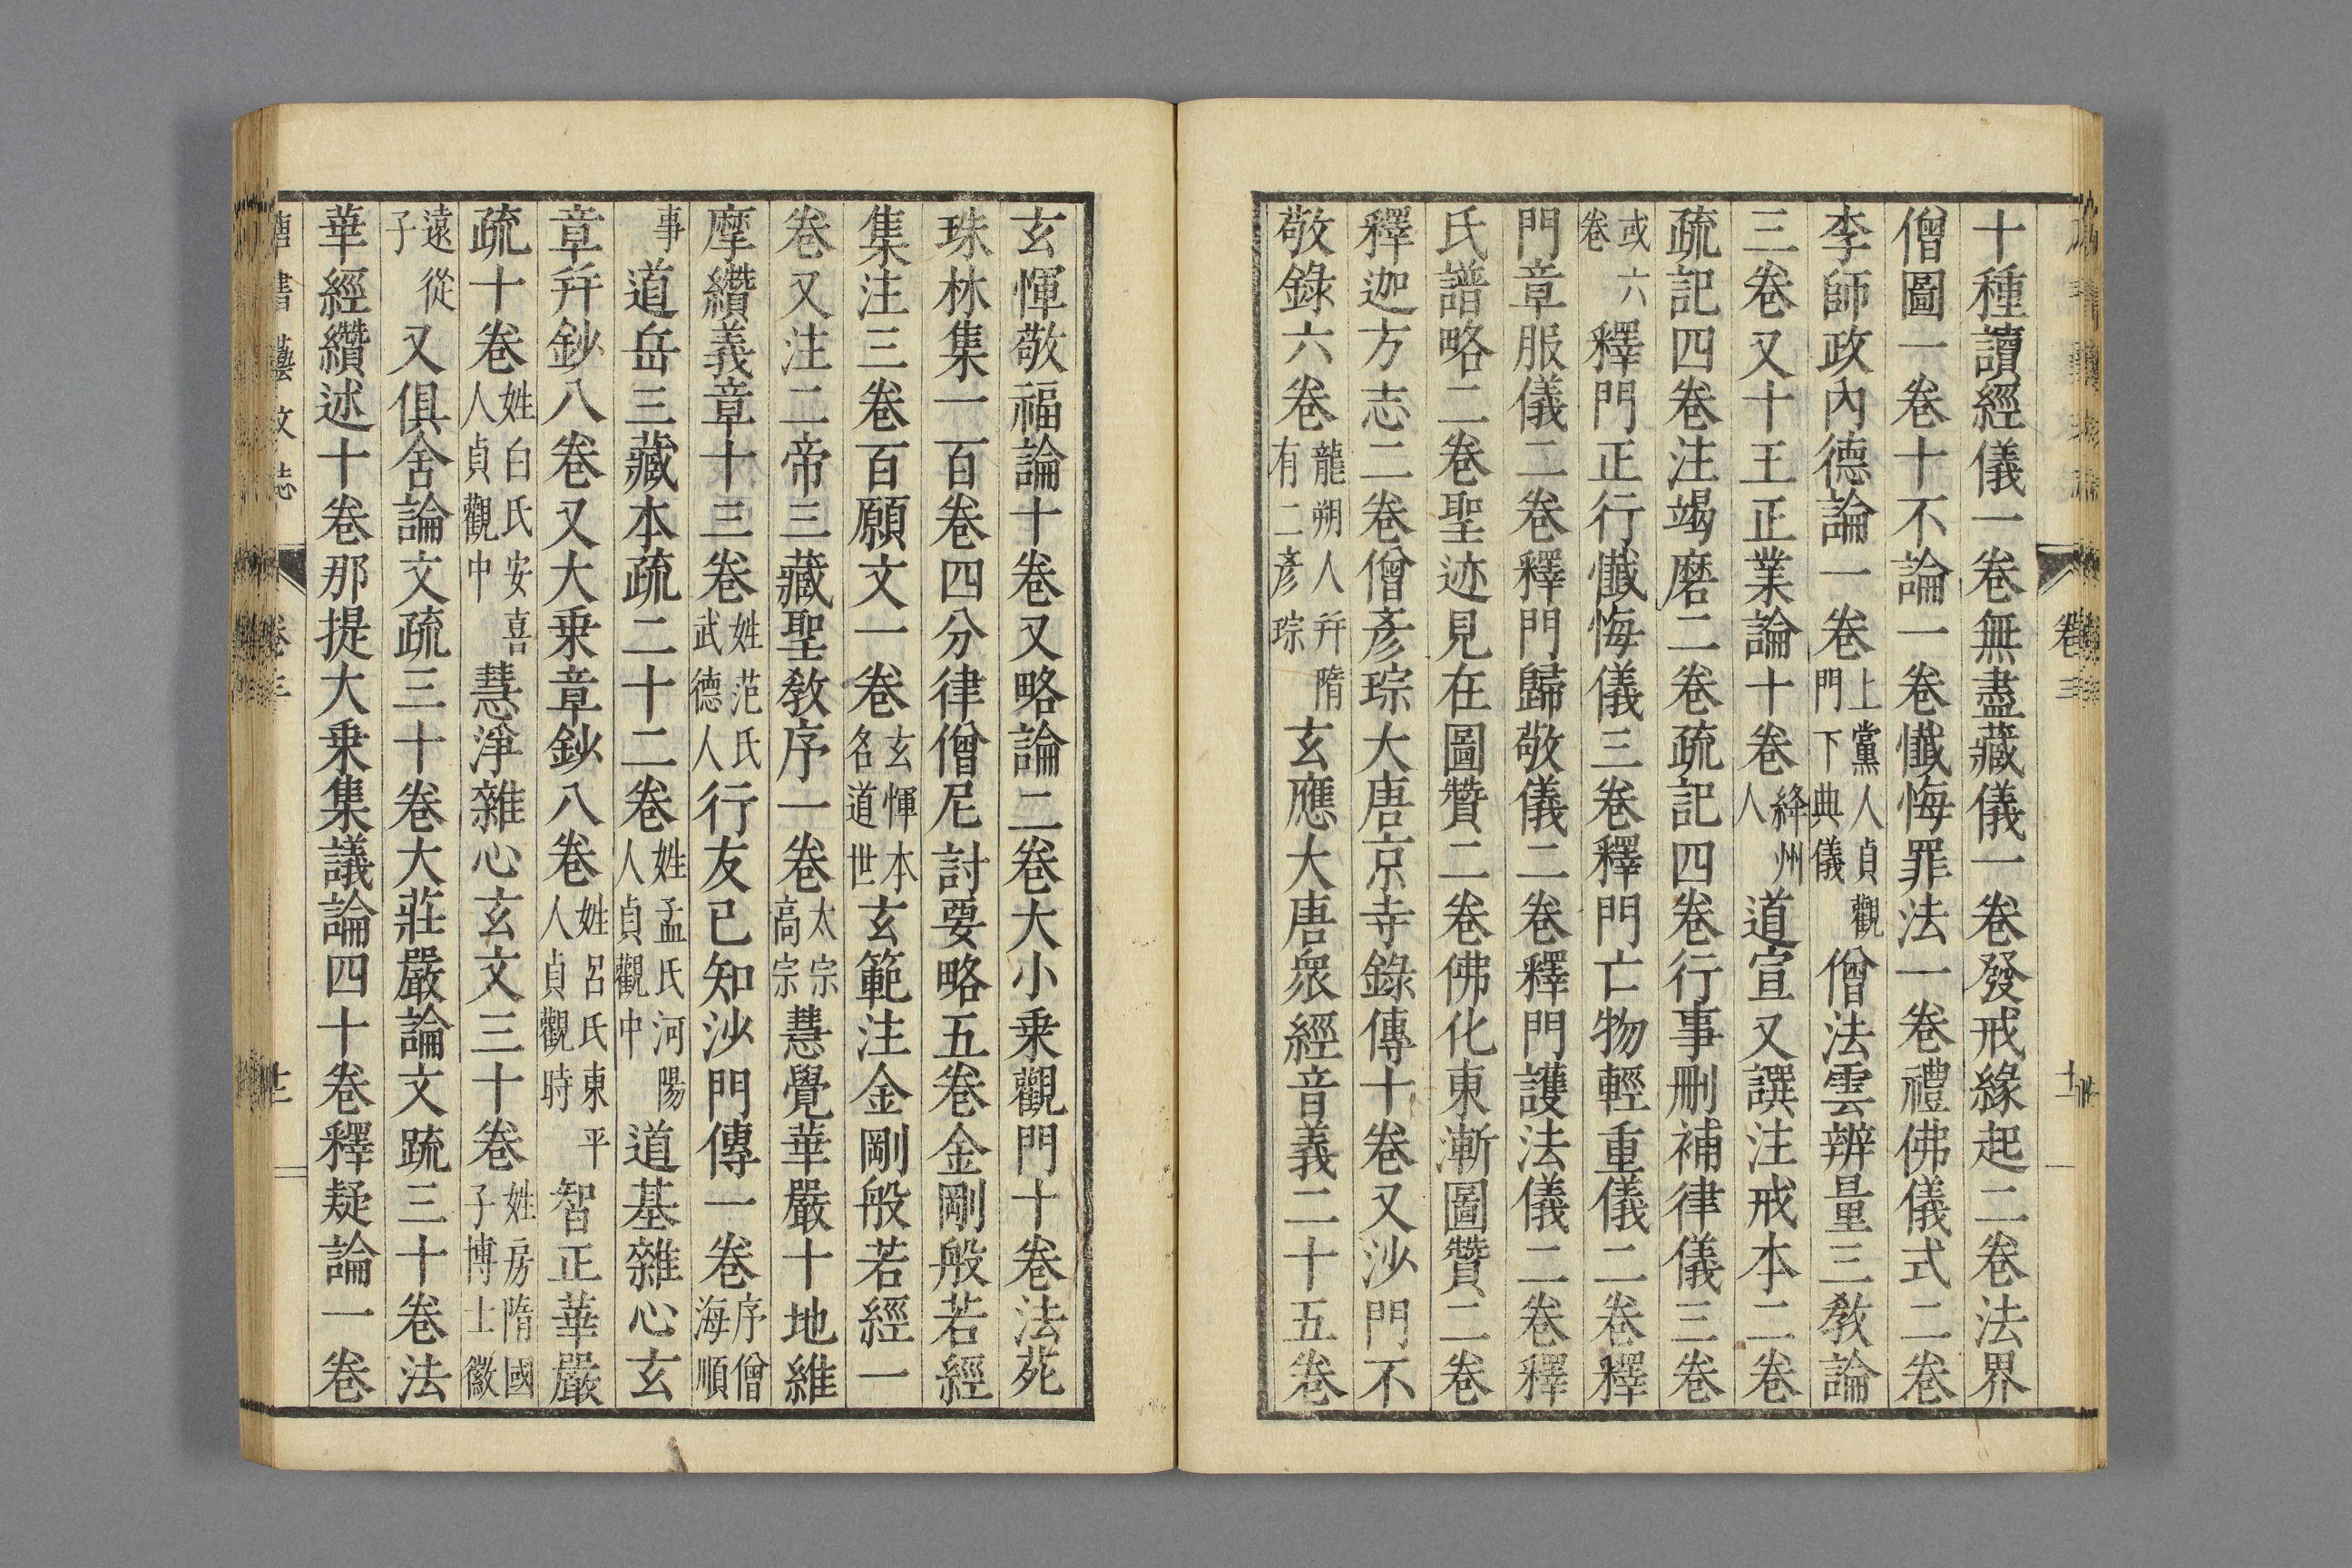 十種讀經儀一卷無盡藏儀一卷發戒緣起二卷法界
僧圖一卷十不論一卷懺悔罪法一卷禮佛儀式二卷
李師政內德論一卷上黨人貞觀門下典儀僧法雲辨量三教論
三卷又十王正業論十卷絳州人道宣又譔注戒本二卷
疏記四卷注羯磨二卷疏記四卷行事刪補律儀三卷
或六卷釋門正行懺悔儀三卷釋門亡物輕重儀二卷釋
門章服儀二卷釋門歸敬儀二卷釋門護法儀二卷釋
氏譜略二卷聖迹見在圖贊二卷佛化東漸圖贊二卷
釋迦方志二卷僧彥琮大唐京寺錄傳十卷又沙門不
敬錄六卷龍朔人并隋有二彥琮玄應大唐眾經音義二十五卷
卷三
玄惲敬福論十卷又略論二卷大小乘觀門十卷法苑
珠林集一百卷四分律僧尼討要略五卷金剛般若經
集注三卷百願文一卷玄惲本名道世玄範注金剛般若經一
卷又注二帝三藏聖教序一卷太宗高宗慧覺華嚴十地維
摩纘義章十三卷姓范氏武德人行友己知沙門傳一卷序僧海順
事道岳三藏本疏二十二卷姓孟氏河陽人貞觀中道基雜心玄
章并鈔八卷又大乘章鈔八卷姓呂氏東平人貞觀時智正華嚴
疏十卷姓白氏安喜人貞觀中慧淨雜心玄文三十卷姓房隋國子博士徽
遠從子又俱舍論文疏三十卷大莊嚴論文疏三十卷法
華經纘述十卷那提大乘集議論四十卷釋疑論一卷
唐書藝文志 卷三